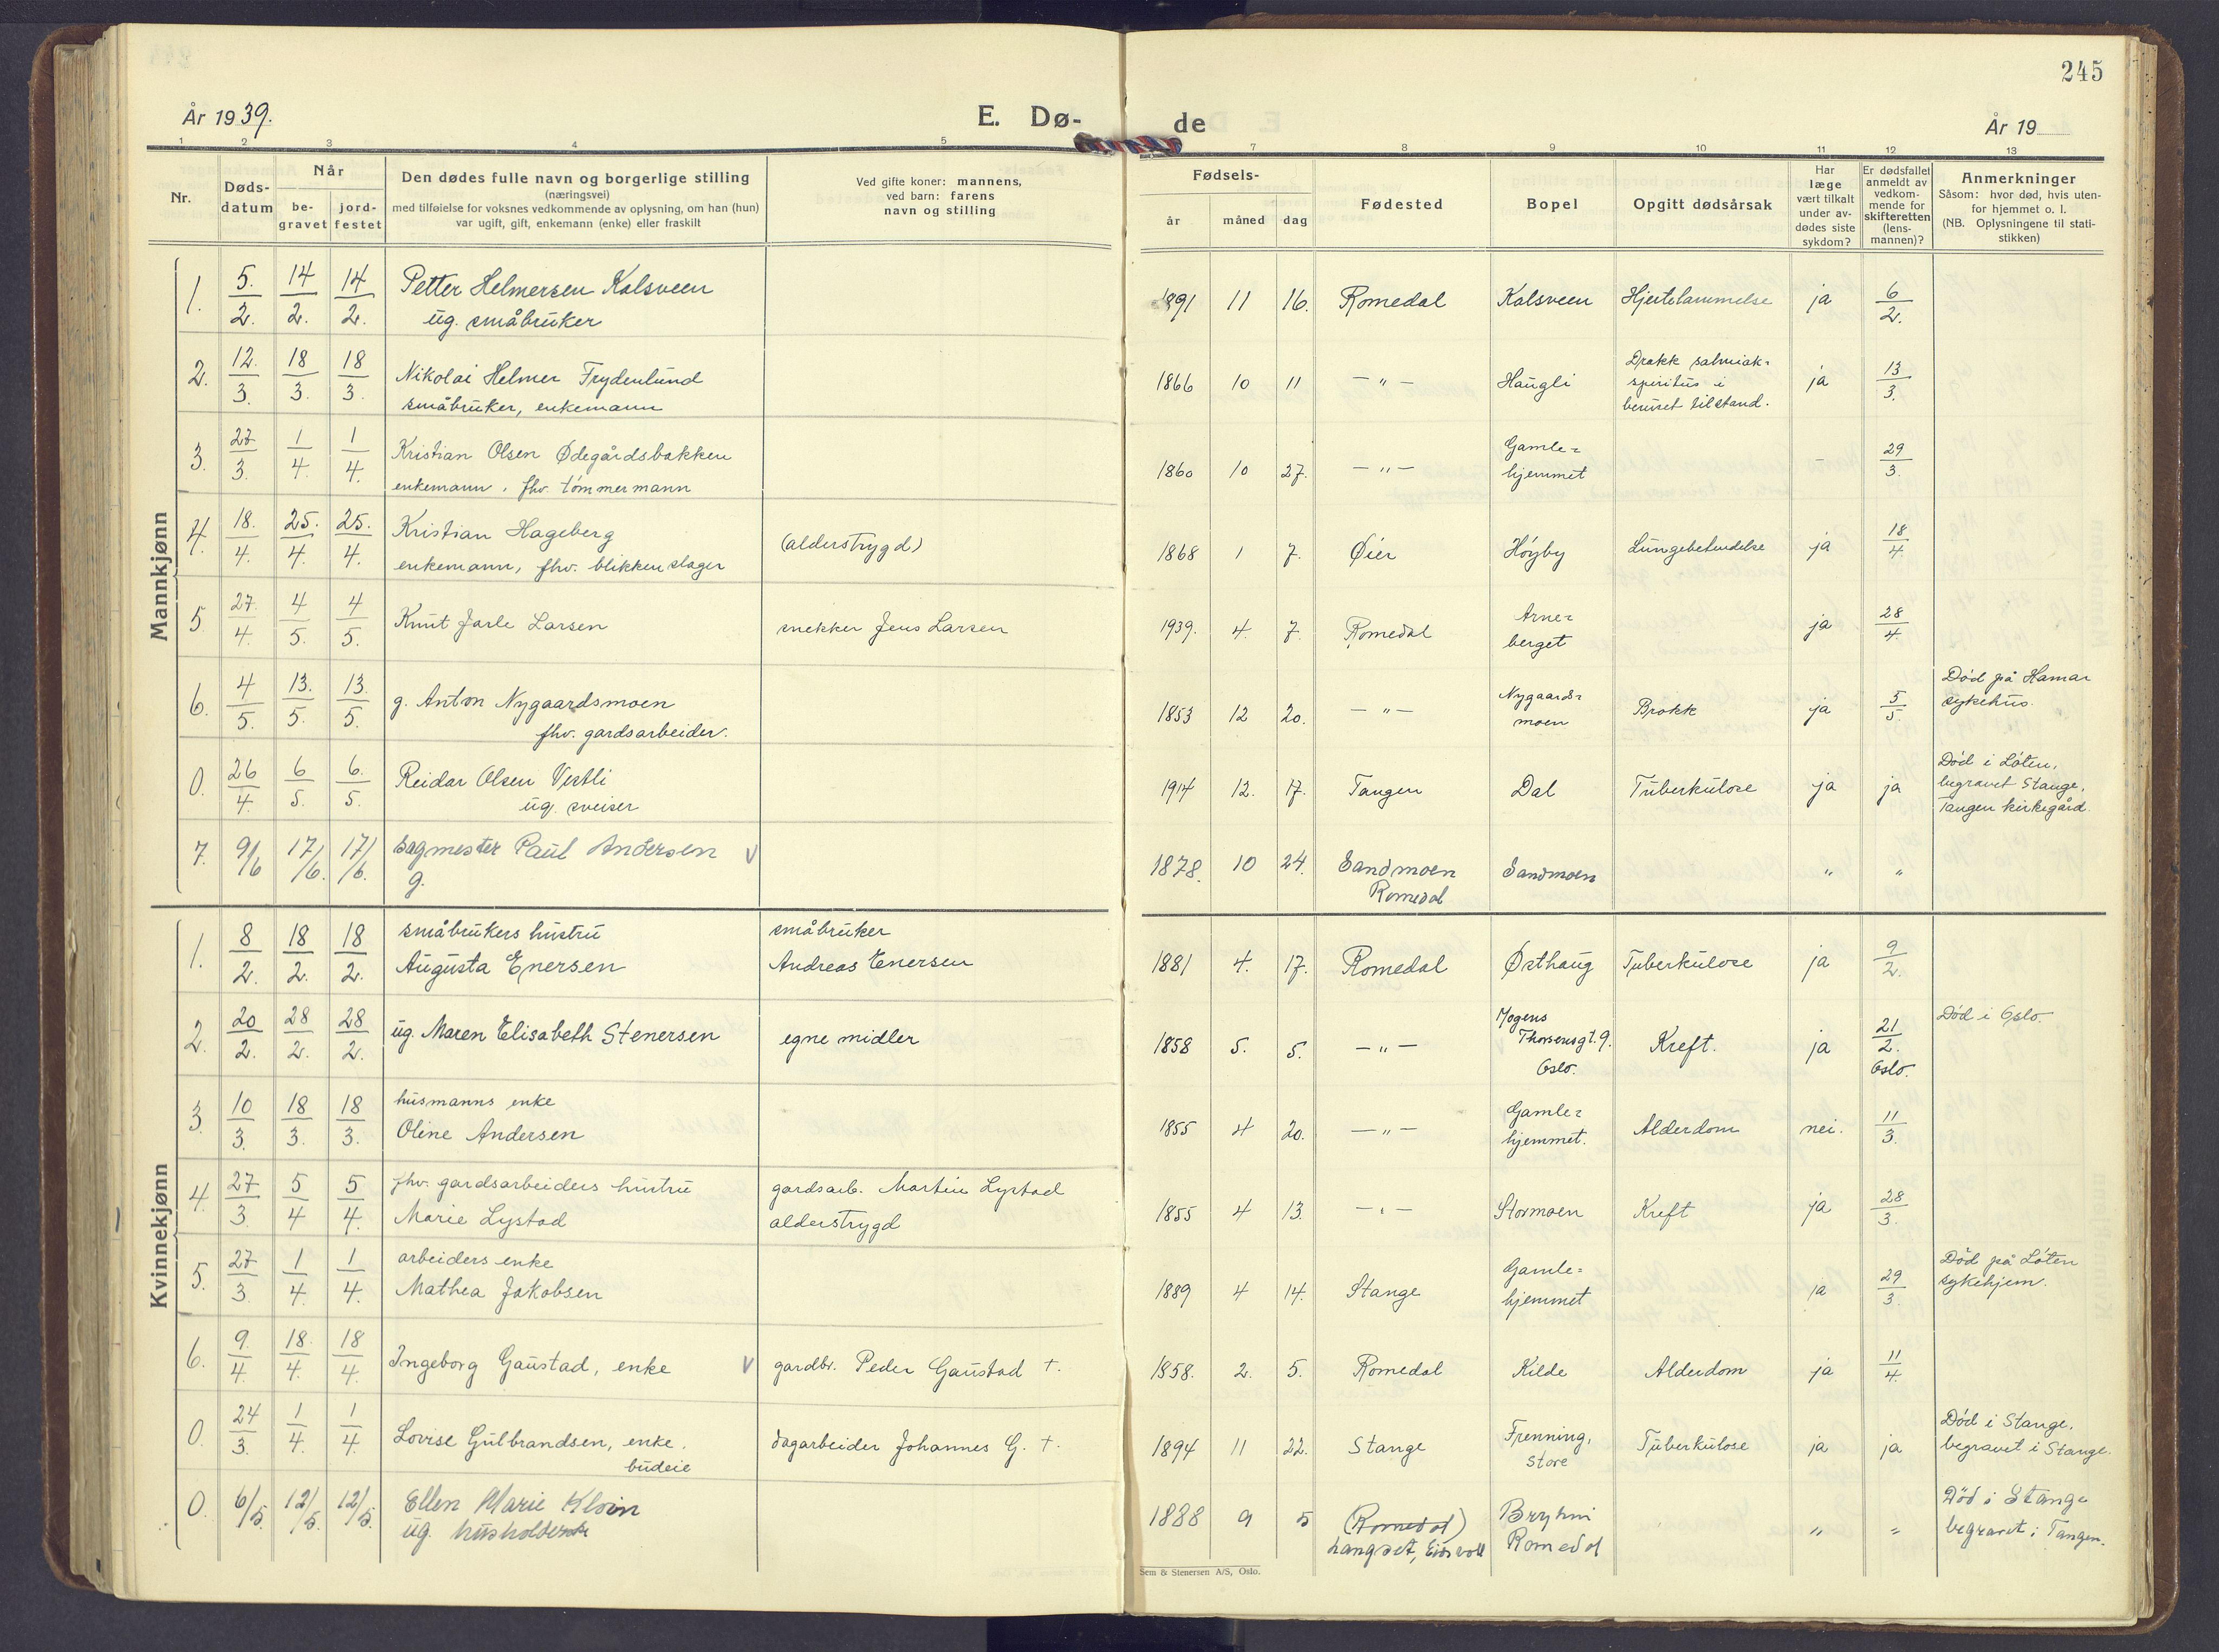 245
År 1939.
E. Dø-
de
År 19
1 2 3 4 5 7 8 9 10 11 12 13
Nr.
Døds-
datum
Når
be-
gravet
jord-
festet
Den dødes fulle navn og borgerlige stilling
(næringsvei)
med tilføielse for voksnes vedkommende av oplysning, om han (hun)
var ugift, gift, enkemann (enke) eller fraskilt
Ved gifte koner: mannens,
ved barn: farens
navn og stilling
Fødsels-
år
måned
dag
Fødested
Bopel
Opgitt dødsårsak
Har
læge
vært tilkalt
under av-
dødes siste
sykdom?
Er dødsfallet
anmeldt av
vedkom-
mende for
skifteretten
(lens-
mannen)?
Anmerkninger
Såsom: hvor død, hvis uten-
for hjemmet o. l.
(NB. Oplysningene til stati-
stikken)
Mannkjønn
1. 5./2. 14/2. 14/2. Petter Helmersen Kalsveen
ug. småbruker
1891 11 16. Romedal Kalsveen Hjertelammelse ja 6/2.
2. 12./3. 18/3. 18/3. Nikolai Helmer Frydenlund
småbruker, enkemann
1866 10 11 — „ — Haugli
Drakk salmiak=
spiritus i
beruset tilstand.
ja 13/3.
3. 27/3. 1/4. 1/4. Kristian Olsen Ødegårdsbakken
enkemann, fhv. tømmermann
1860 10 27. — „ —
Gamle=
hjemmet
– 29/3.
4. 18./4. 25./4. 25./4. Kristian Hageberg
enkemann, fhv. blikkenslager
(alderstrygd)
1868 1 7. Øier Høyby Lungebetendelse ja 18/4.
5 27./4. 4/5. 4/5. Knut Jarle Larsen
snekker Jens Larsen
1939. 4. 7. Romedal
Arne=
berget
ja 28/4.
6. 4/5. 13./5. 13./5. g. Anton Nygaardsmoen
fhv. gardsarbeider.
1853 12 20. — „ —
Nygaards=
moen
Brokk ja 5/5.
Død på Hamar
sykehus.
0. 26/4. 6/5. 6./5. Reidar Olsen Vestli
ug. sveiser
1914 12. 17. Tangen Dal Tuberkulose ja ja
Død i Løten,
begravet Stange,
Tangen kirkegård.
7. 9/6 17/6. 17/6. Sagmester Paul Andersen V
g.
1878. 10 24. Sandmoen
Romedal
Sandmoen „ „
Kvinnekjønn
1. 8/2. 18/2. 18/2. småbrukers hustru
Augusta Enersen
småbruker
Andreas Enersen
1881 4. 17. Romedal Østhaug Tuberkulose ja 9/2.
2. 20/2. 28/2. 28/2. ug. Maren Elisabeth Stenersen
egne midler
1858 5. 5. — „ —
Mogens
Thorsensgt. 9.
Oslo.
Kreft. ja 21/2.
Oslo.
Død i Oslo.
3. 10/3. 18/3. 18/3. husmanns enke
Oline Andersen
1855 4 20. — „ —
Gamle=
hjemmet.
Alderdom nei. 11/3.
4. 27/3. 5/4 5/4. fhv. gardsarbeiders hustru
Marie Lystad
gardsarb. Martin Lystad
alderstrygd
1855 4 13. — „ — Stormoen Kreft ja 28/3.
5. 27/3. 1/4. 1/4. arbeiders enke
Mathea Jakobsen
1889 4 14. Stange
Gamle=
hjemmet
ja 29/3.
Død på Løten
sykehjem.
6. 9./4. 18./4. 18/4. Ingeborg Gaustad, enke V
gardbr. Peder Gaustad †.
1858. 2. 5. Romedal Kilde Alderdom ja 11/4.
0. 24/3. 1/4. 1/4. Lovise Gulbrandsen, enke.
budeie
dagarbeider Johannes G. †.
1894 11 22. Stange
Frenning,
store
Tuberkulose ja ja
Død i Stange,
begravet i Stange.
0. 6/5. 12/5. 12/5. Ellen Marie
ug.
1888 9 5 (Romedal)
Langset, Eidsvoll
Romedal
„ „
Død i Stange
begravet i Tangen.
Sem & Stenersen A/S, Oslo.